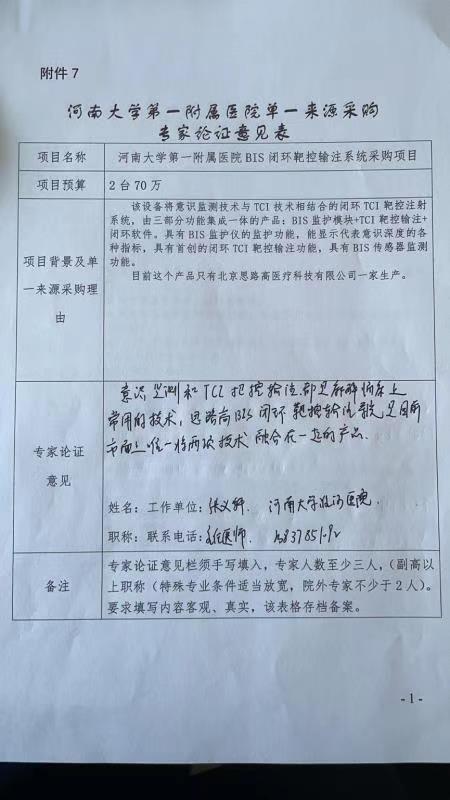 附件 7
河南大学第一附属医院单一来源采购
专家论证意见表
项目名称 河南大学第一附属医院 BIS 闭环靶控输注系统采购项目
项目预算 2 台 70 万
项目背景及单一来源采购理由
该设备将意识监测技术与 TCI 技术相结合的闭环 TCI 靶控注射
系统，由三部分功能集成一体的产品：BIS 监护模块+TCI 靶控输注+
闭环软件。具有 BIS 监护仪的监护功能，能显示代表意识深度的各
种指标，具有首创的闭环 TCI 靶控输注功能，具有 BIS 传感器监测
功能。
目前这个产品只有北京思路高医疗科技有限公司一家生产。
专家论证
意见
意识监测和TCI靶控输注都是麻醉临床上
常用的技术，思路高BIS闭环靶控输注系统是目前
市面上唯一将两项技术融合在一起的产品。
姓名：工作单位： 河南大学淮河医院
职称：联系电话：
备注
专家论证意见栏须手写填入，专家人数至少三人，（副高以
上职称（特殊专业条件适当放宽，院外专家不少于 2 人）。
要求填写内容客观、真实，该表格存档备案。
- 1 -